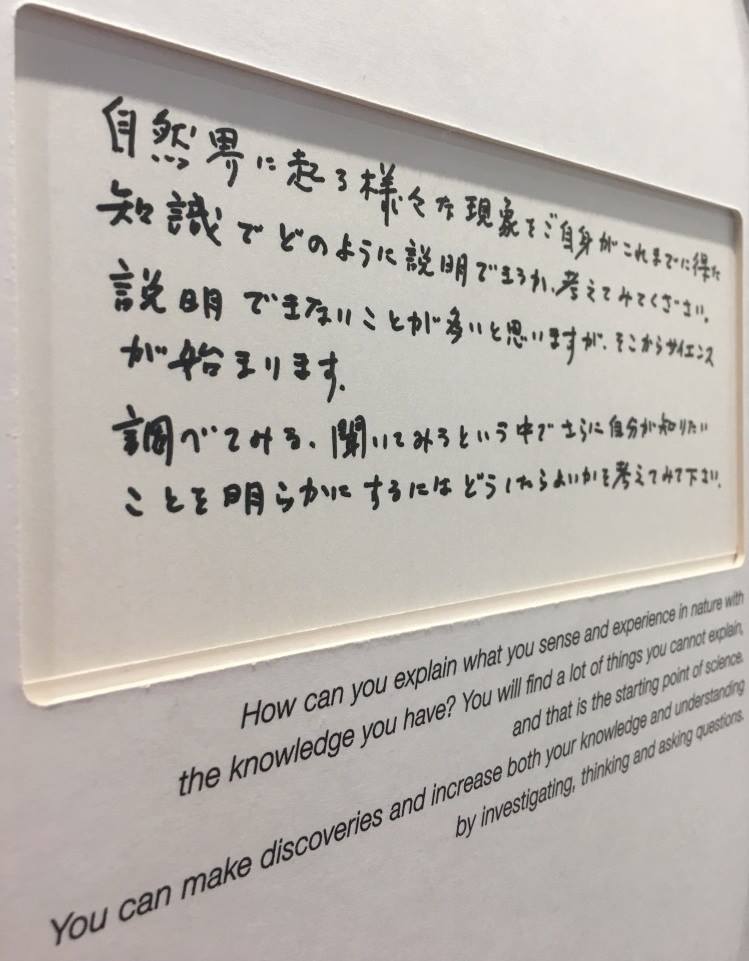 自然界に起る様々な現象をご自身がこれまでに得た
知識でどのように説明できるか、考えてみてください。
説明できないことが多いと思いますが、そこからサイエンス
が始まります。
調べてみる、聞いてみるという中でさらに自分が知りたい
ことを明らかにするにはどうしたらよいかを考えてみて下さい。
How can you explain what you sense and experience in nature with
the knowledge you have? You will find a lot of things you cannot explain,
and that is the starting point of science.
You can make discoveries and increase both your knowledge and understanding
by investigating, thinking and asking questions.